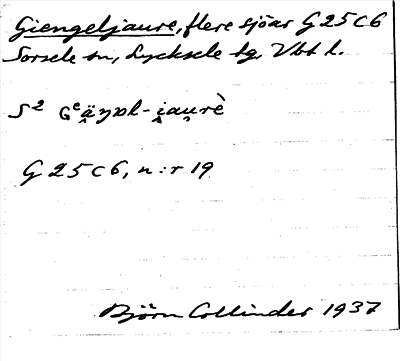 Giengeljaure, flere sjöar G 25 C 6
Sorsele sn, Lycksele tg. Vbt l.
G 25 C 6, n:r 19
Björn Collinder 1937